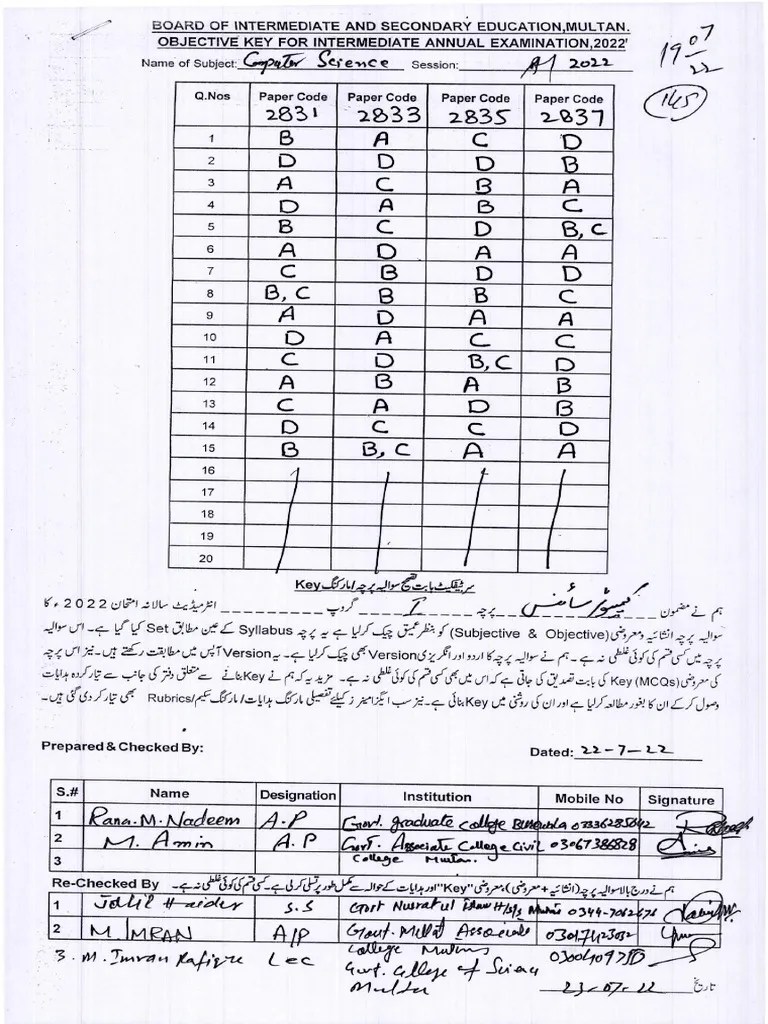 BOARD OF INTERMEDIATE AND SECONDARY EDUCATION,MULTAN.
OBJECTIVE KEY FOR INTERMEDIATE ANNUAL EXAMINATION,2022'
Name of Subject: Computer Science Session: A/ 2022
19 07 22
145
Q.Nos Paper Code Paper Code Paper Code Paper Code
2831 2833 2835 2837
1 B A C D
2 D D D B
3 A C B A
4 D A B C
5 B C D B, C
6 A D A A
7 C B D D
8 B, C B B C
9 A D A A
10 D A C C
11 C D B, C D
12 A B A B
13 C A D B
14 D C C D
15 B B, C A A
16
17
18
19
20
سرٹیفکیٹ بابت تصحیح سوالیہ پرچہ/مارکنگ Key
ہم نے مضمون کمپیوٹر سائنس پرچہ I گروپ انٹرمیڈیٹ سالانہ امتحان 2022ء کا
سوالیہ پرچہ انشائیہ و معروضی (Subjective & Objective) کو بنظر عمیق چیک کر لیا ہے یہ پرچہ Syllabus کے عین مطابق Set کیا گیا ہے۔ اس سوالیہ
پرچہ میں کسی قسم کی کوئی غلطی نہ ہے۔ ہم نے سوالیہ پرچہ کا اردو اور انگریزی Version بھی چیک کر لیا ہے۔ یہ Version آپس میں مطابقت رکھتے ہیں۔ نیز اس پرچہ
کی معروضی (MCQs) Key کی بابت تصدیق کی جاتی ہے کہ اس میں بھی کسی قسم کی کوئی غلطی نہ ہے۔ مزید یہ کہ ہم نے Key بنانے سے متعلق دفتر کی جانب سے تیار کردہ ہدایات
وصول کر کے ان کا بغور مطالعہ کر لیا ہے اور ان کی روشنی میں Key بنائی ہے۔ نیز سب ایگزامینرز کیلئے تفصیلی مارکنگ ہدایات/مارکنگ سکیم/Rubrics بھی تیار کر دی گئی ہیں۔
Prepared & Checked By: Dated: 22-7-22
S.# Name Designation Institution Mobile No Signature
1 Rana.M.Nadeem A.P Govt. graduate College
2 M. Amin A.P Govt. Associate College Civil 03067386828
3 College Multan.
Re-Checked By ہم نے درج بالا سوالیہ پرچہ (انشائیہ + معروضی)، معروضی "Key" اور ہدایات کے حوالہ سے مکمل طور پر تسلی کر لی ہے۔ کسی قسم کی کوئی غلطی نہ ہے۔
1 Jalil Haider S.S Govt Nusratul Islam
2 M. IMRAN A/P Govt. Millat Associate
College Multan
3. M. Imran Rafique Lec Govt. College of Science
Multan
23-07-22 تاریخ